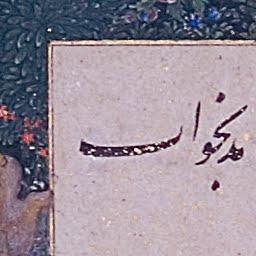 بخواب